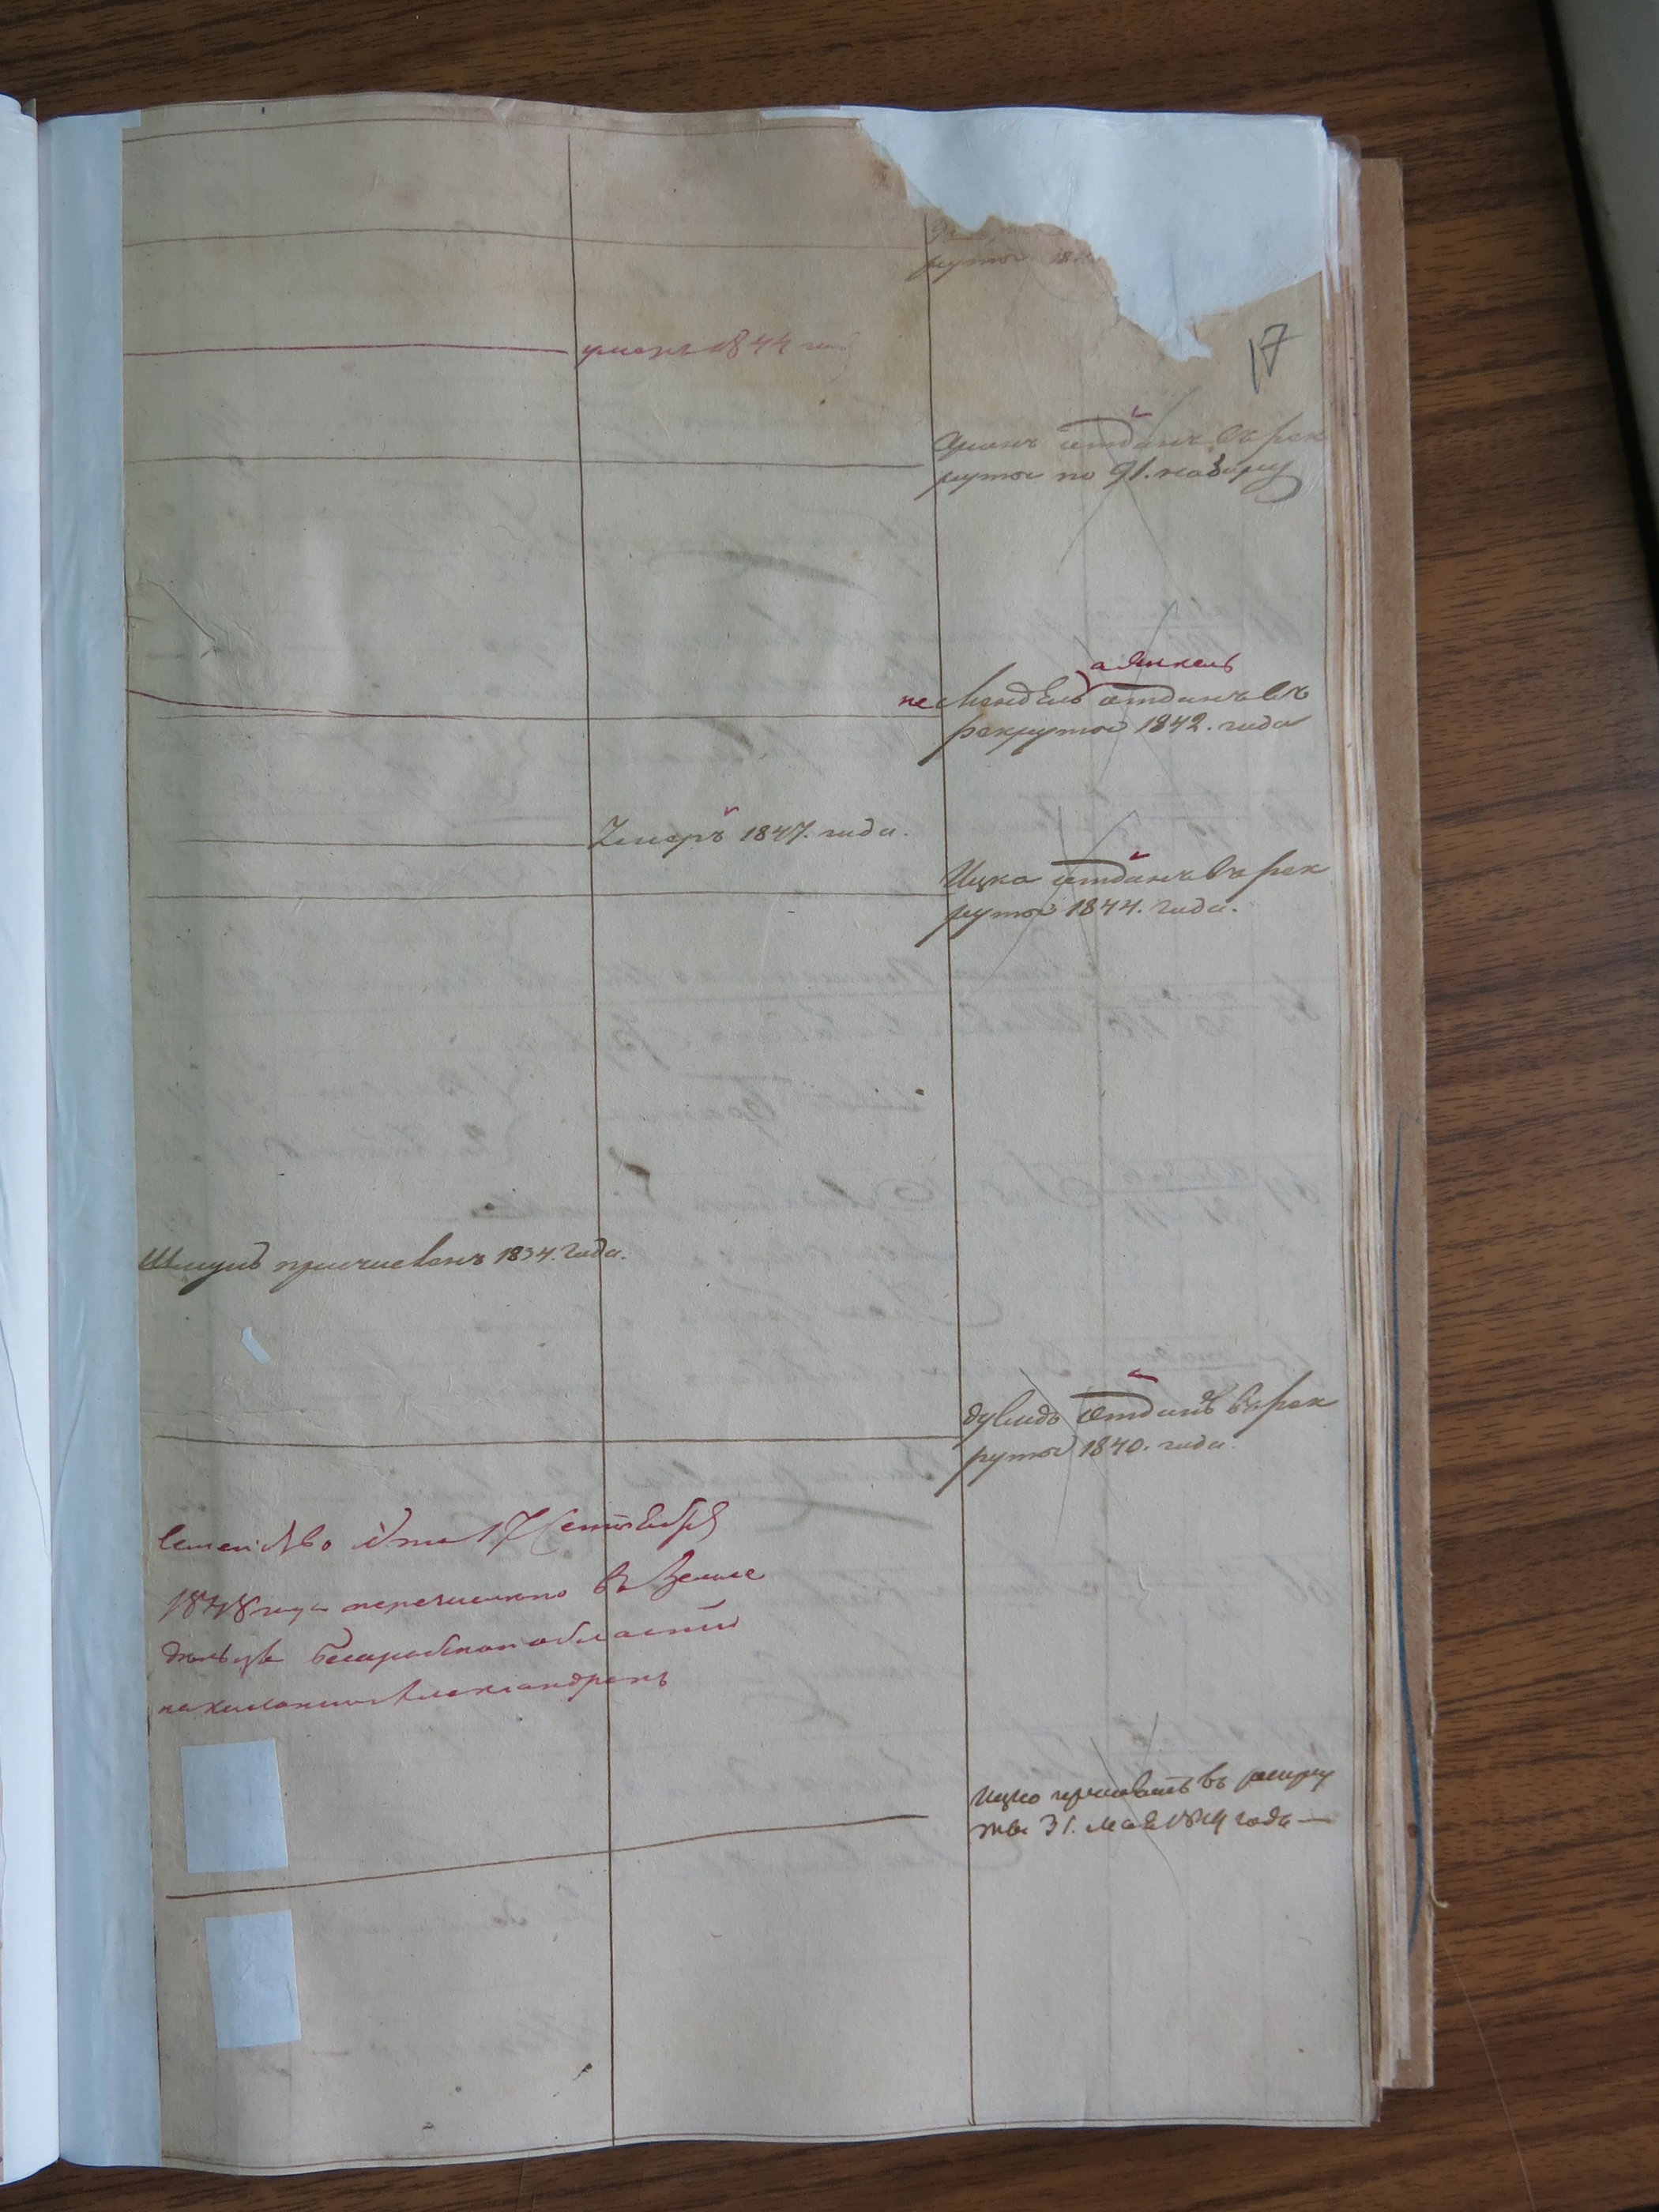 руты 18
17
умеръ 1844 года
отданъ въ рек
руты по 91. набору
а Янкель
не Мендель отданъ въ
рекруты 1842. года
Умеръ 1847. года.
Ицко отданъ въ рек
руты 1844. года.
Шмуль причисленъ 1834. года.
Дувидъ отданъ въ рек
руты 1840. года.
Семейство это 17 Сентября
1848 года перечислено въ Земле
дельцы Бесарабской области
на колонию Александрень
Ицко в рекру
ты 31. Мая года —